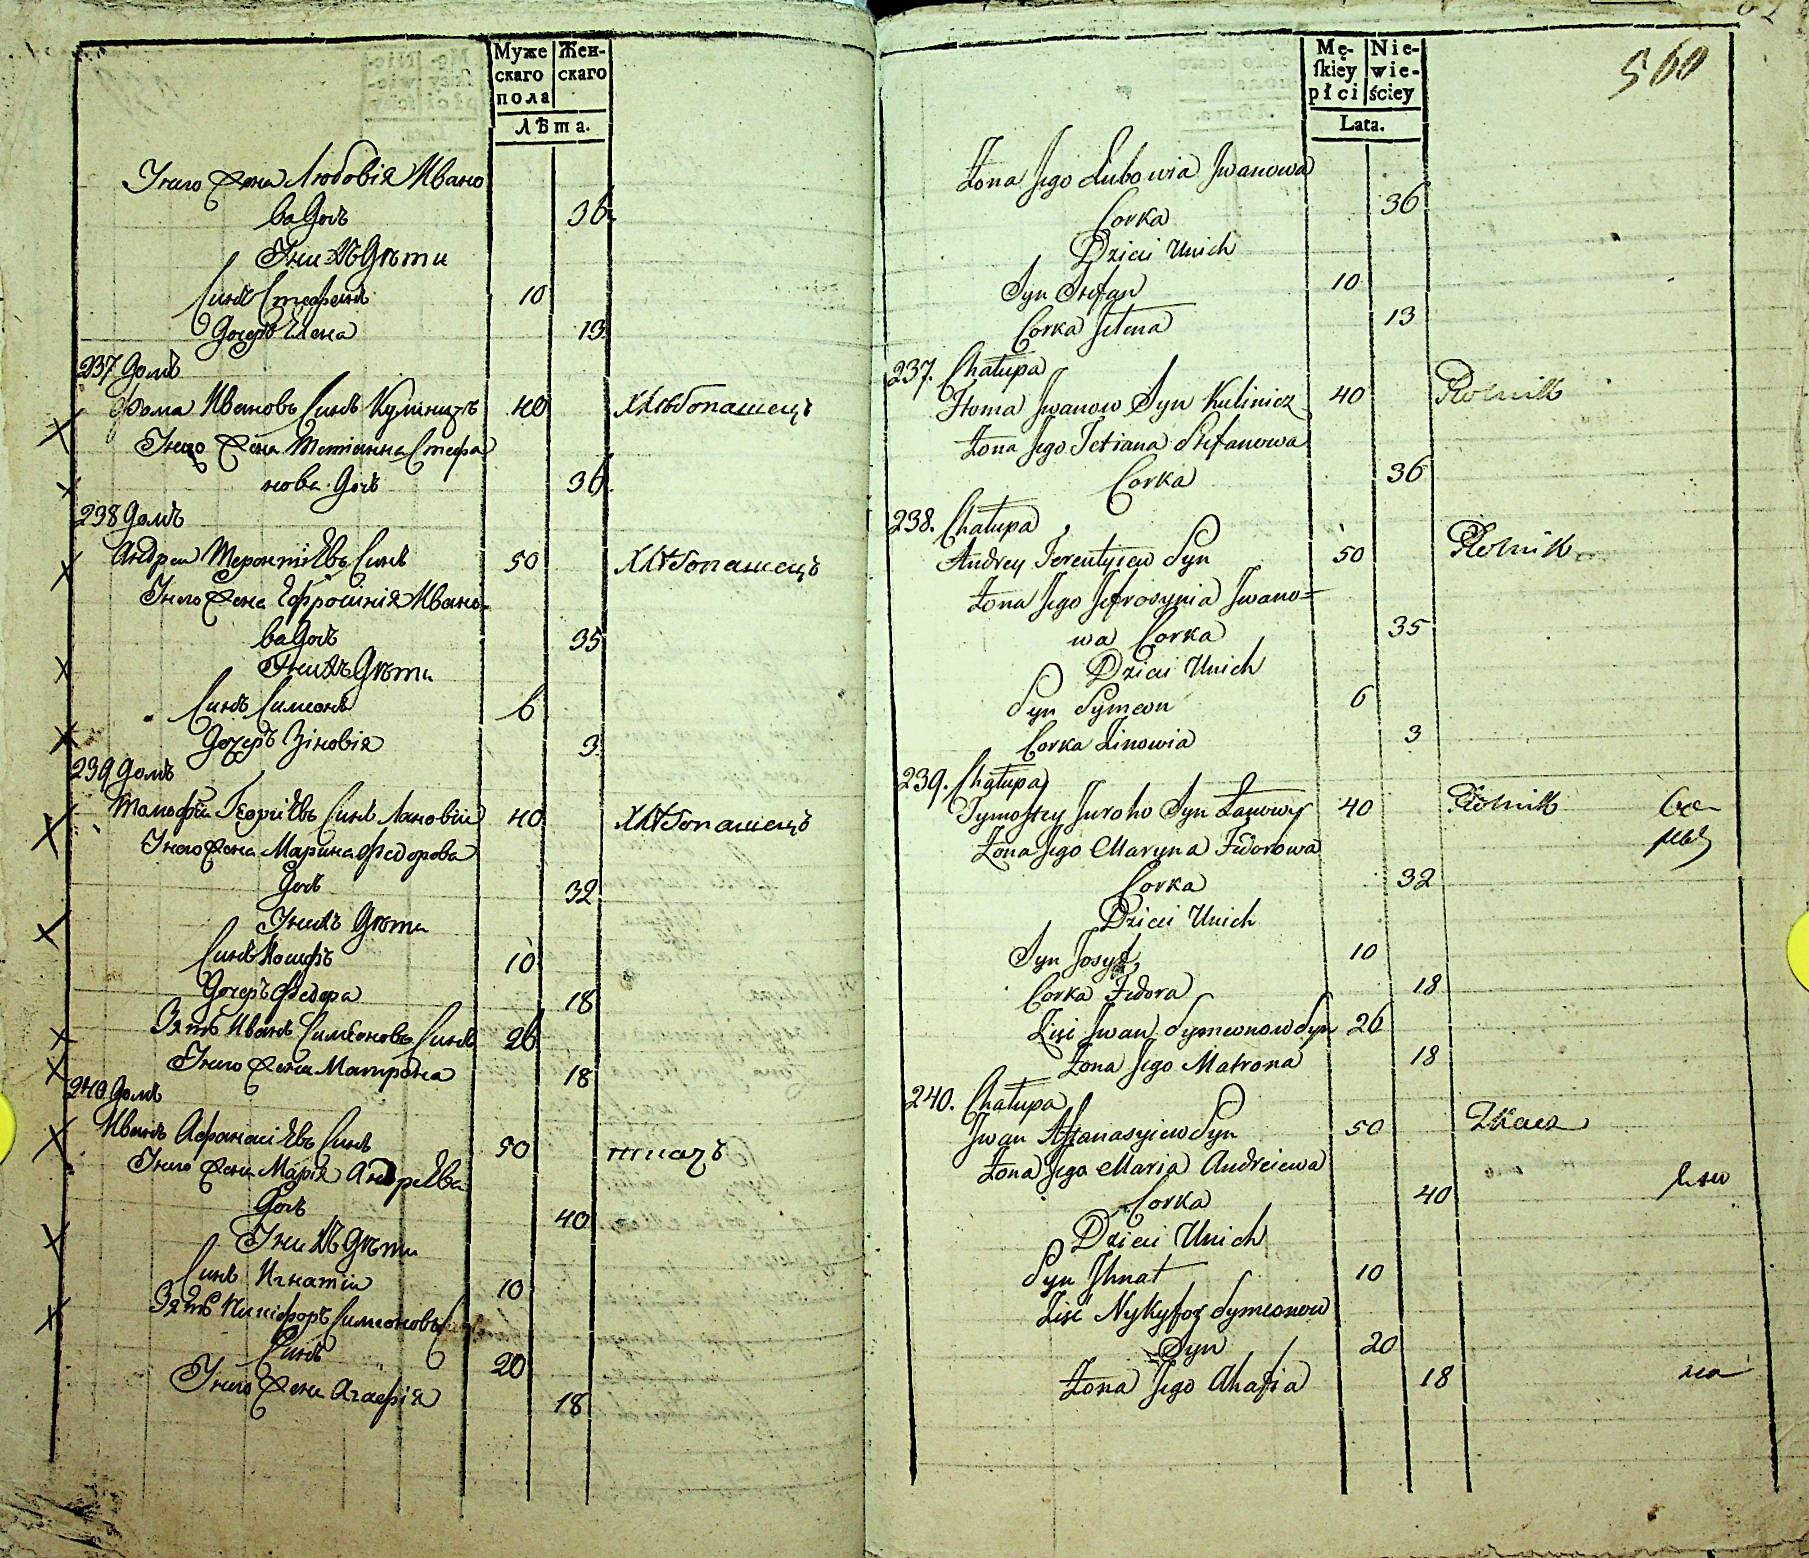 Муже Жен-
скаго скаго
пола
Лѣта.
Его жена Любовія Ивано
ва дочь 36
У нихъ дѣти
Синъ Стефанъ 10
Дочерь Елена 13
237 домъ
Фома Ивановъ Синъ Кулиничъ 40 Хлѣбопашецъ
Его жена Тетіанна Стефа
нова дочь 36
238 домъ
Андрей Терентіевъ Синъ 50 Хлѣбопашецъ
Его жена Ефросинія Ивано-
ва дочь 35
У нихъ дѣти
Синъ Симеонъ 6
Дочерь Зіновія 3
239 домъ
Тимофій Георгіевъ Синъ Лановій 40 Хлѣбопашецъ
Его жена Марина Федорова
дочь 32
У нихъ дѣти
Синъ Іосифъ 10
Дочерь Федора 18
Зять Иванъ Симеоновъ Синъ 26
Его жена Матрона 18
240 домъ
Иванъ Афанасіевъ Синъ 50 ткачъ
Его жена Марія Андреева
дочь 40
У нихъ дѣти
Синъ Игнатій 10
Зять Никіфоръ Симеоновъ
Синъ 20
Его жена Агафія 18
560
Mę- Nie-
skiey wie-
płci ściey
Lata.
Żona Jego Lubowia Jwanowa
Corka 36
Dzieci Unich
Syn Stefan 10
Corka Jelena 13
237. Chałupa
Homa Jwanow Syn Kulinicz 40 Rolnik
Żona Jego Tetiana Stefanowa
Corka 36
238. Chałupa
Andrey Terentyiew Syn 50 Rolnik
Żona Jego Jefrosynia Jwano=
wa Corka 35
Dzieci Unich
Syn Symeon 6
Corka Zinowia 3
239. Chałupa
Tymoftey Juroho Syn Łanowy 40 Rolnik
Żona Jego Maryna Fedorowa
Corka 32
Dzieci Unich
Syn Josyf 10
Corka Fedora 18
Zięć Jwan Symeonow Syn 26
Żona Jego Matrona 18
240. Chałupa
Jwan Affanasyiew Syn 50 Tkacz
Żona Jego Maria Andreiewa
Corka 40
Dzieci Unich
Syn Jhnat 10
Zięć Nykyfor Symeonow
Syn 20
Żona Jego Ahafia 18